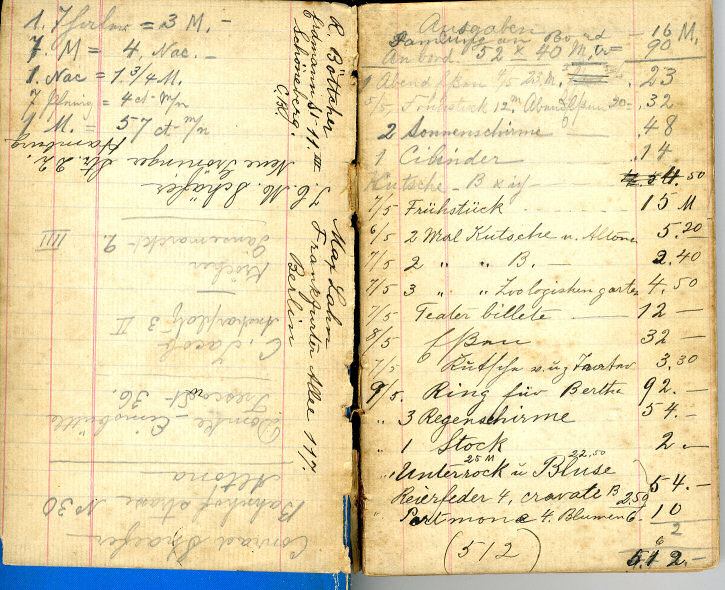 1. Thaler = 3 M. -
7. M = 4. Nac. -
1. Nac = 1.3/4 M.
7 Pfennig = 4 ct- m/n
1 M. = 57 ct- m/n
Hamburg
Neue Gröninger Str. 22.
J. C. M. Schäfer
IIII
Gänsemarckt 9.
Kröcher
Andreasplatz 3 II
C. Jacob
Trescowstr 36.
Eimsbüttel
Altona
Bahnhof strasse No 30
Conrad Schaefer
R. Böttcher
Erdmann St. 11 III
Schöneberg.
Max Lahn
Frankfurter Allee 117.
Berlin
Ausgaben
an Bord - 16 M.
An bord. 52 x 40 M, 90
1 Abend Essen 5/5 23 M. 23
5/5 Frühstück 12, Abend Essen 20 - 32
2 Sonnenschirme - 48
1 Cilinder - 14
Kutsche - B 50
7/5 Frühstück 15 M
6/5 2 Mal Kutsche n. Altona 5.20
7/5 2 " " B. - 2.40
7/5 3 " " Zoologischen garten 4.50
7/5 Teater billete - 12 -
8/5 Essen 32 -
7/5 Kutsche v. u. z Teater 3.30
9/5. Ring für Bertha 92. -
" 3 Regenschirme 54. -
" 1 Stock 2 -
25 M 22,50
" Unterrock u Bluse 54. -
" Reierfeder 4, cravate B 2.50
" Portmone 4. Blumen 6- 10
2
6
(512) 512 -